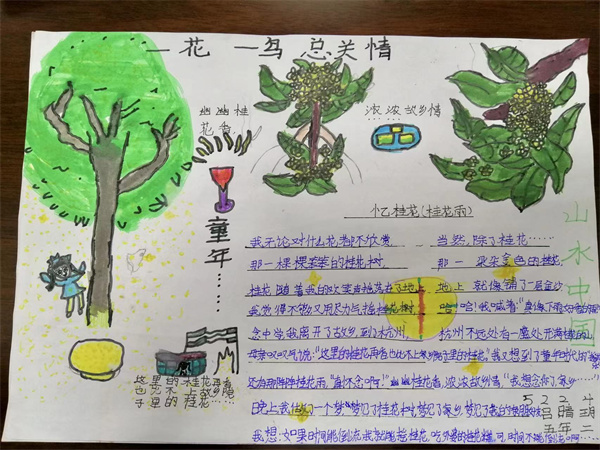 一花一鸟总关情
幽幽桂
花香，
浓浓故乡情
……
童年……
忆桂花（桂花雨）
我无论对什么花都不欣赏～当然，除了桂花……
那一棵棵笨笨的桂花树，那一朵朵金色的桂花
桂花随着我的欢笑声摇落在了地上，地上就像铺了一层金沙
我觉得不够又用尽力气摇桂花树，哈哈！我喊着：“真像下雨
念中学，我离开了故乡，到了杭州，杭州不远处有一处处开满桂
母亲叹叹气说：“这里的桂花再香也比不上家乡院子里的桂花。”我又想到了童年时代的
还有那阵阵桂花雨。“真怀念啊！”幽幽桂花香，浓浓故乡情，“我想念你了家乡
晚上我做了一个梦，梦见了桂花树，梦见了家乡，梦见了
我想：如果时间能倒流我就能摇桂花，吃外婆的桂花糕，可时间不能倒流啊！
这里的桂花再香
也比不上故乡院
子里的桂花
山水中国
五年二